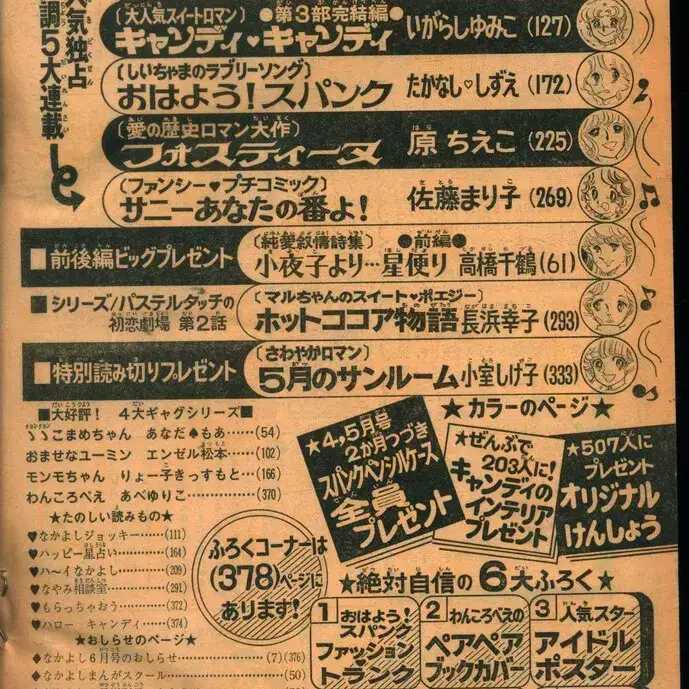 人気独占
調5大連載
〔大人気スイートロマン〕 ●第3部完結編●
キャンディ♥キャンディ いがらしゆみこ(127)
〔しいちゃまのラブリーソング〕
おはよう!スパンク たかなし♡しずえ(172)
〔愛の歴史ロマン大作〕
フォスティーヌ 原ちえこ(225)
〔ファンシー♥プチコミック〕
サニーあなたの番よ! 佐藤まり子(269)
■前後編ビッグプレゼント
〔純愛叙情詩集〕 ●前編●
小夜子より…星便り 高橋千鶴(61)
■シリーズ/パステルタッチの
初恋劇場 第2話
〔マルちゃんのスイート♥ポエジー〕
ホットココア物語 長浜幸子(293)
■特別読み切りプレゼント
〔さわやかロマン〕
5月のサンルーム 小室しげ子(333)
■大好評! 4大ギャグシリーズ■
こまめちゃん あなだ♠もあ……(54)
おませなユーミン エンゼル松本…(102)
モンモちゃん りょー子きっすもと…(166)
わんころべえ あべゆりこ……(370)
★たのしい読みもの★
♥なかよしジョッキー……(111)
♥ハッピー星占い……(164)
♥ハ〜イなかよし……(209)
♥なやみ相談室……(291)
♥もらっちゃおう……(372)
♥ハロー キャンディ……(374)
★おしらせのページ★
◆なかよし6月号のおしらせ……(7)(376)
◆なかよしまんがスクール……(50)
ふろくコーナーは
(378)ページに
あります!
★カラーのページ★
★4,5月号
2か月つづき
スパンクペンシルケース
全員
プレゼント
★ぜんぶで
203人に!
キャンディの
インテリア
プレゼント
★507人に
プレゼント
オリジナル
けんしょう
★絶対自信の6大ふろく★
1 おはよう!
スパンク
ファッション
トランク
2 わんころべえの
ペアペア
ブックカバー
3 人気スター
アイドル
ポスター